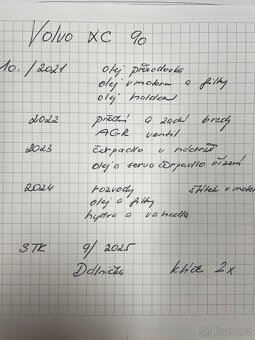 Volvo XC 90
10./2021 olej převodovka
olej v motoru a filtry
olej haldex
2022 přední a zadní brzdy
AGR ventil
2023 čerpadlo v nádrži
olej a servo čerpadlo řízení
2024 rozvody štítek v motoru
olej a filtry
hydra a vahadla
STK 9/2025
Dálnička klíče 2x